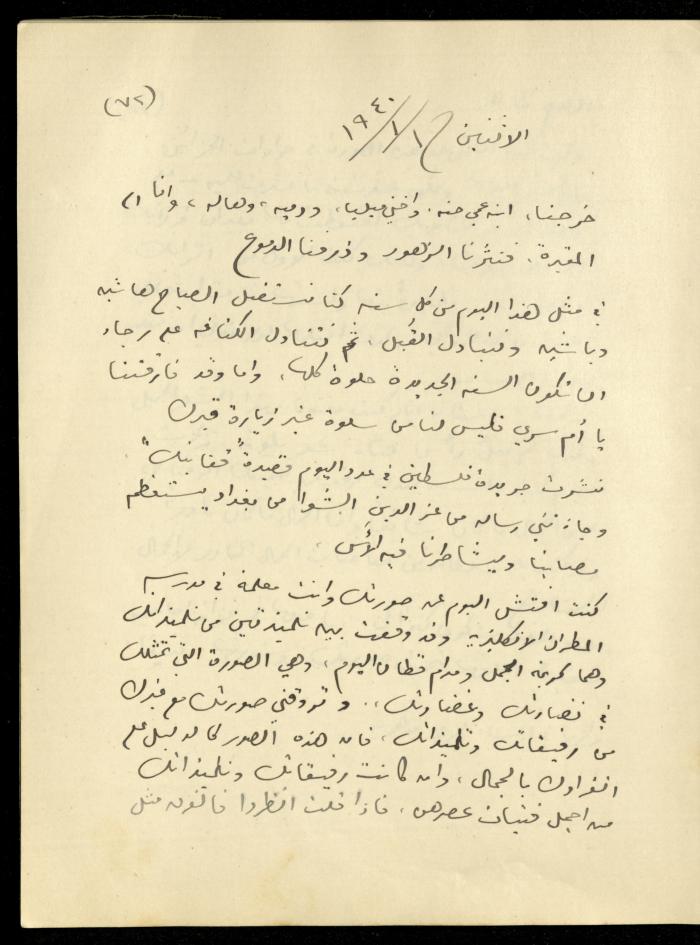 (٧٢)
الاثنين ١/١/١٩٤٠
خرجنا، ابنة عمي حنه، واختي ميليا، ودميه، وهاله، وانا الى
المقبرة، فنثرنا الزهور وذرفنا الدموع
في مثل هذا اليوم من كل سنه كنا نستقبل الصباح هاشيه
وباشيه ونتبادل القُبل، ثم نتناول الكنافه على رجاء
ان تكون السنه الجديدة حلوة كلها، واما وقد فارقتنا
يا أم سري فليس لنا من سلوة غير زيارة قبرك
نشرت جريدة فلسطين في عدد اليوم قصيدة "قفا نبك"
وجاءتني رساله من عز الدين الشوا من بغداد يستفظع
مصابنا ويشاطرنا فيه الأسى،
كنت افتش اليوم عن صورتك وانت معلمة في مدرسه
المطران الانكليزيه وقد وقفت بين تلميذتين من تلميذاتك
وهما كريمة الجمل ومدام قطان اليوم، وهي الصورة التي تمثلك
في نضارتك وغضارتك،. وتروقني صورتك مع غيرك
من رفيقاتك وتلميذاتك، فان هذه الصور لهي دليل على
انفرادك بالجمال، وان كانت رفيقاتك وتلميذاتك
من اجمل فتيات عصرهن، فاذا قلت انظروا فالقوم مثل